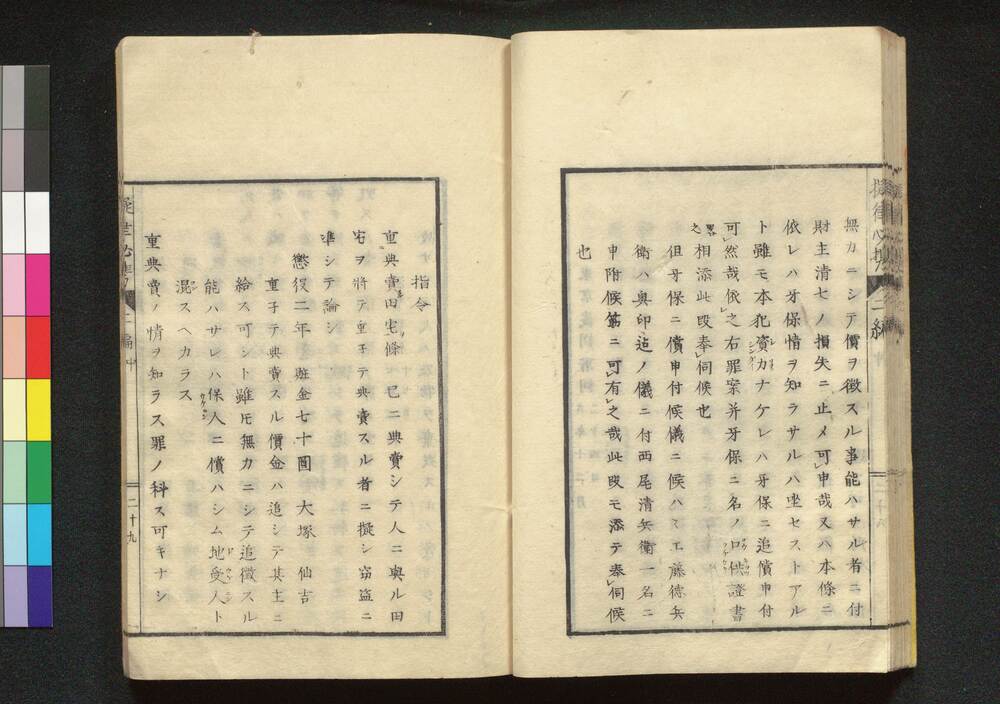 無力ニシテ償ヲ徴スル事能ハサル者ニ付
財主清七ノ損失ニ止メ可申哉又ハ本條ニ
依レハ牙保情ヲ知ラサルハ坐セストアル
ト雖モ本犯資力ナケレハ牙保ニ追償申付
可然哉依之右罪案并牙保ニ名ノ口供證書
畧之相添此段奉伺候也
但牙保ニ償申付候儀ニ候ハヽ工藤德兵
衛ハ奥印迠ノ儀ニ付西尾清兵衛一名ニ
申附候筋ニ可有之哉此段モ添テ奉伺候
也
二編
指令
重典賣田宅條已ニ典賣シテ人ニ與ル田
宅ヲ將テ重子テ典賣スル者ニ擬シ窃盗ニ
準シテ論シ
懲役二年贓金七十圓 大塚仙吉
重子テ典賣スル價金ハ追シテ其主ニ
給ス可シト雖モ無力ニシテ追徴スル
能ハサレハ保人ニ償ハシム地受人ト
混スヘカラス
重典賣ノ情ヲ知ラス罪ノ科ス可キナシ
二編 中
二十九